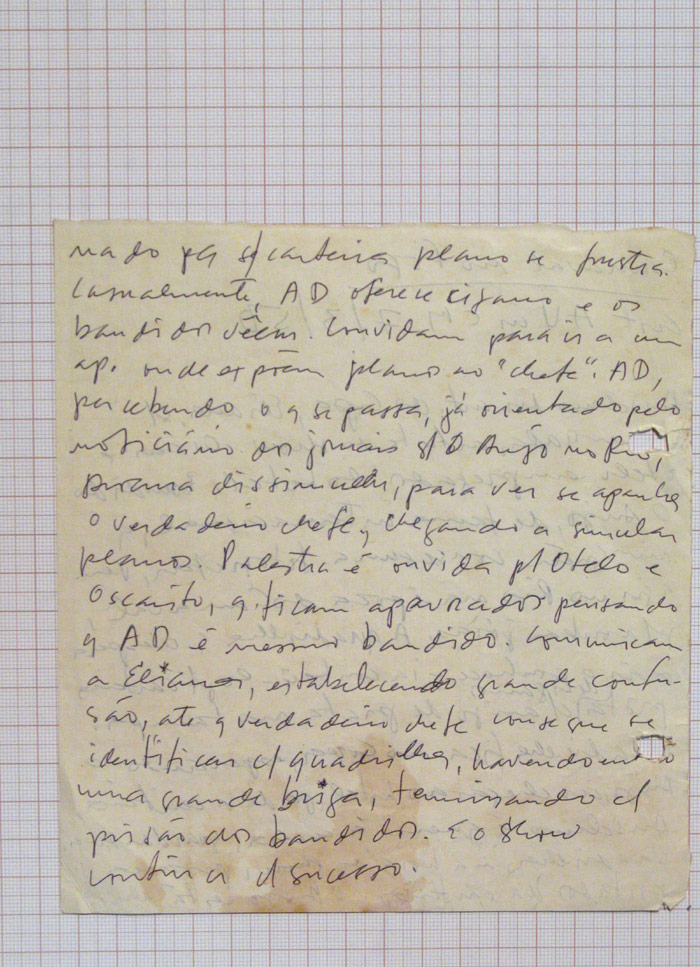 nado por s/carteira plano se frustra.
Casualmente, AD oferece cigano e os
bandidos vêem. Convidam para ir a um
ap. onde expõem plano ao "chefe". AD,
percebendo o q se passa, já orientado pelo
noticiário dos jornais s/ O Anjo no Rio,
procura dissimular, para ver se apanha
o verdadeiro chefe, chegando a simular
planos. Palestra é ouvida p/ Otelo e
Oscarito, q. ficam apavorados pensando
q AD é mesmo bandido. Comunicam
a Eliana, estabelecendo grande confu-
são, até q verdadeiro chefe consegue se
identificar c/ quadrilha, havendo então
uma grande briga, terminando c/
prisão dos bandidos. E o show
continua c/ sucesso.